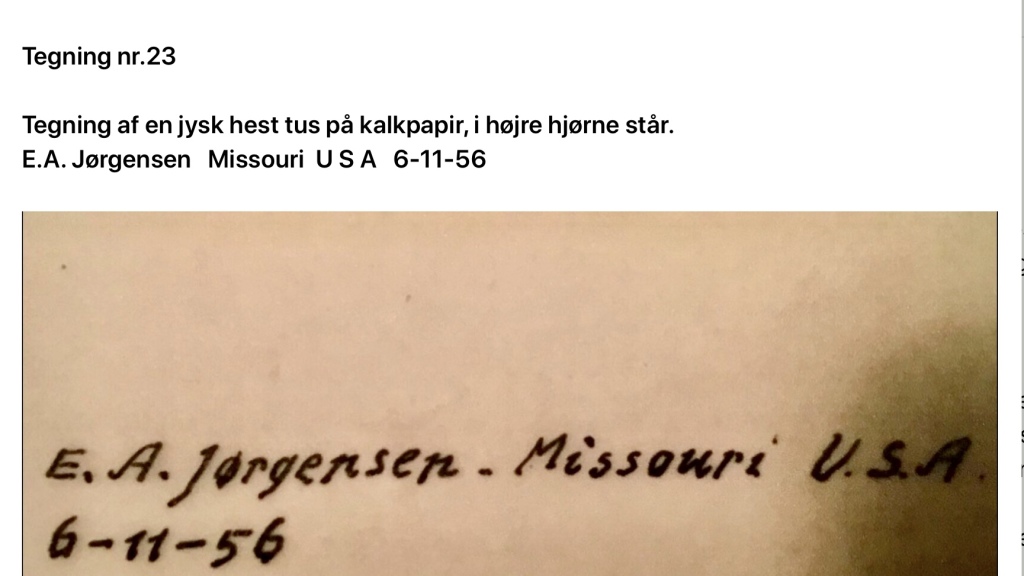 Tegning nr.23
Tegning af en jysk hest tus på kalkpapir, i højre hjørne står.
E.A. Jørgensen Missouri U S A 6-11-56
E. A. Jørgensen - Missouri U.S.A.
6-11-56